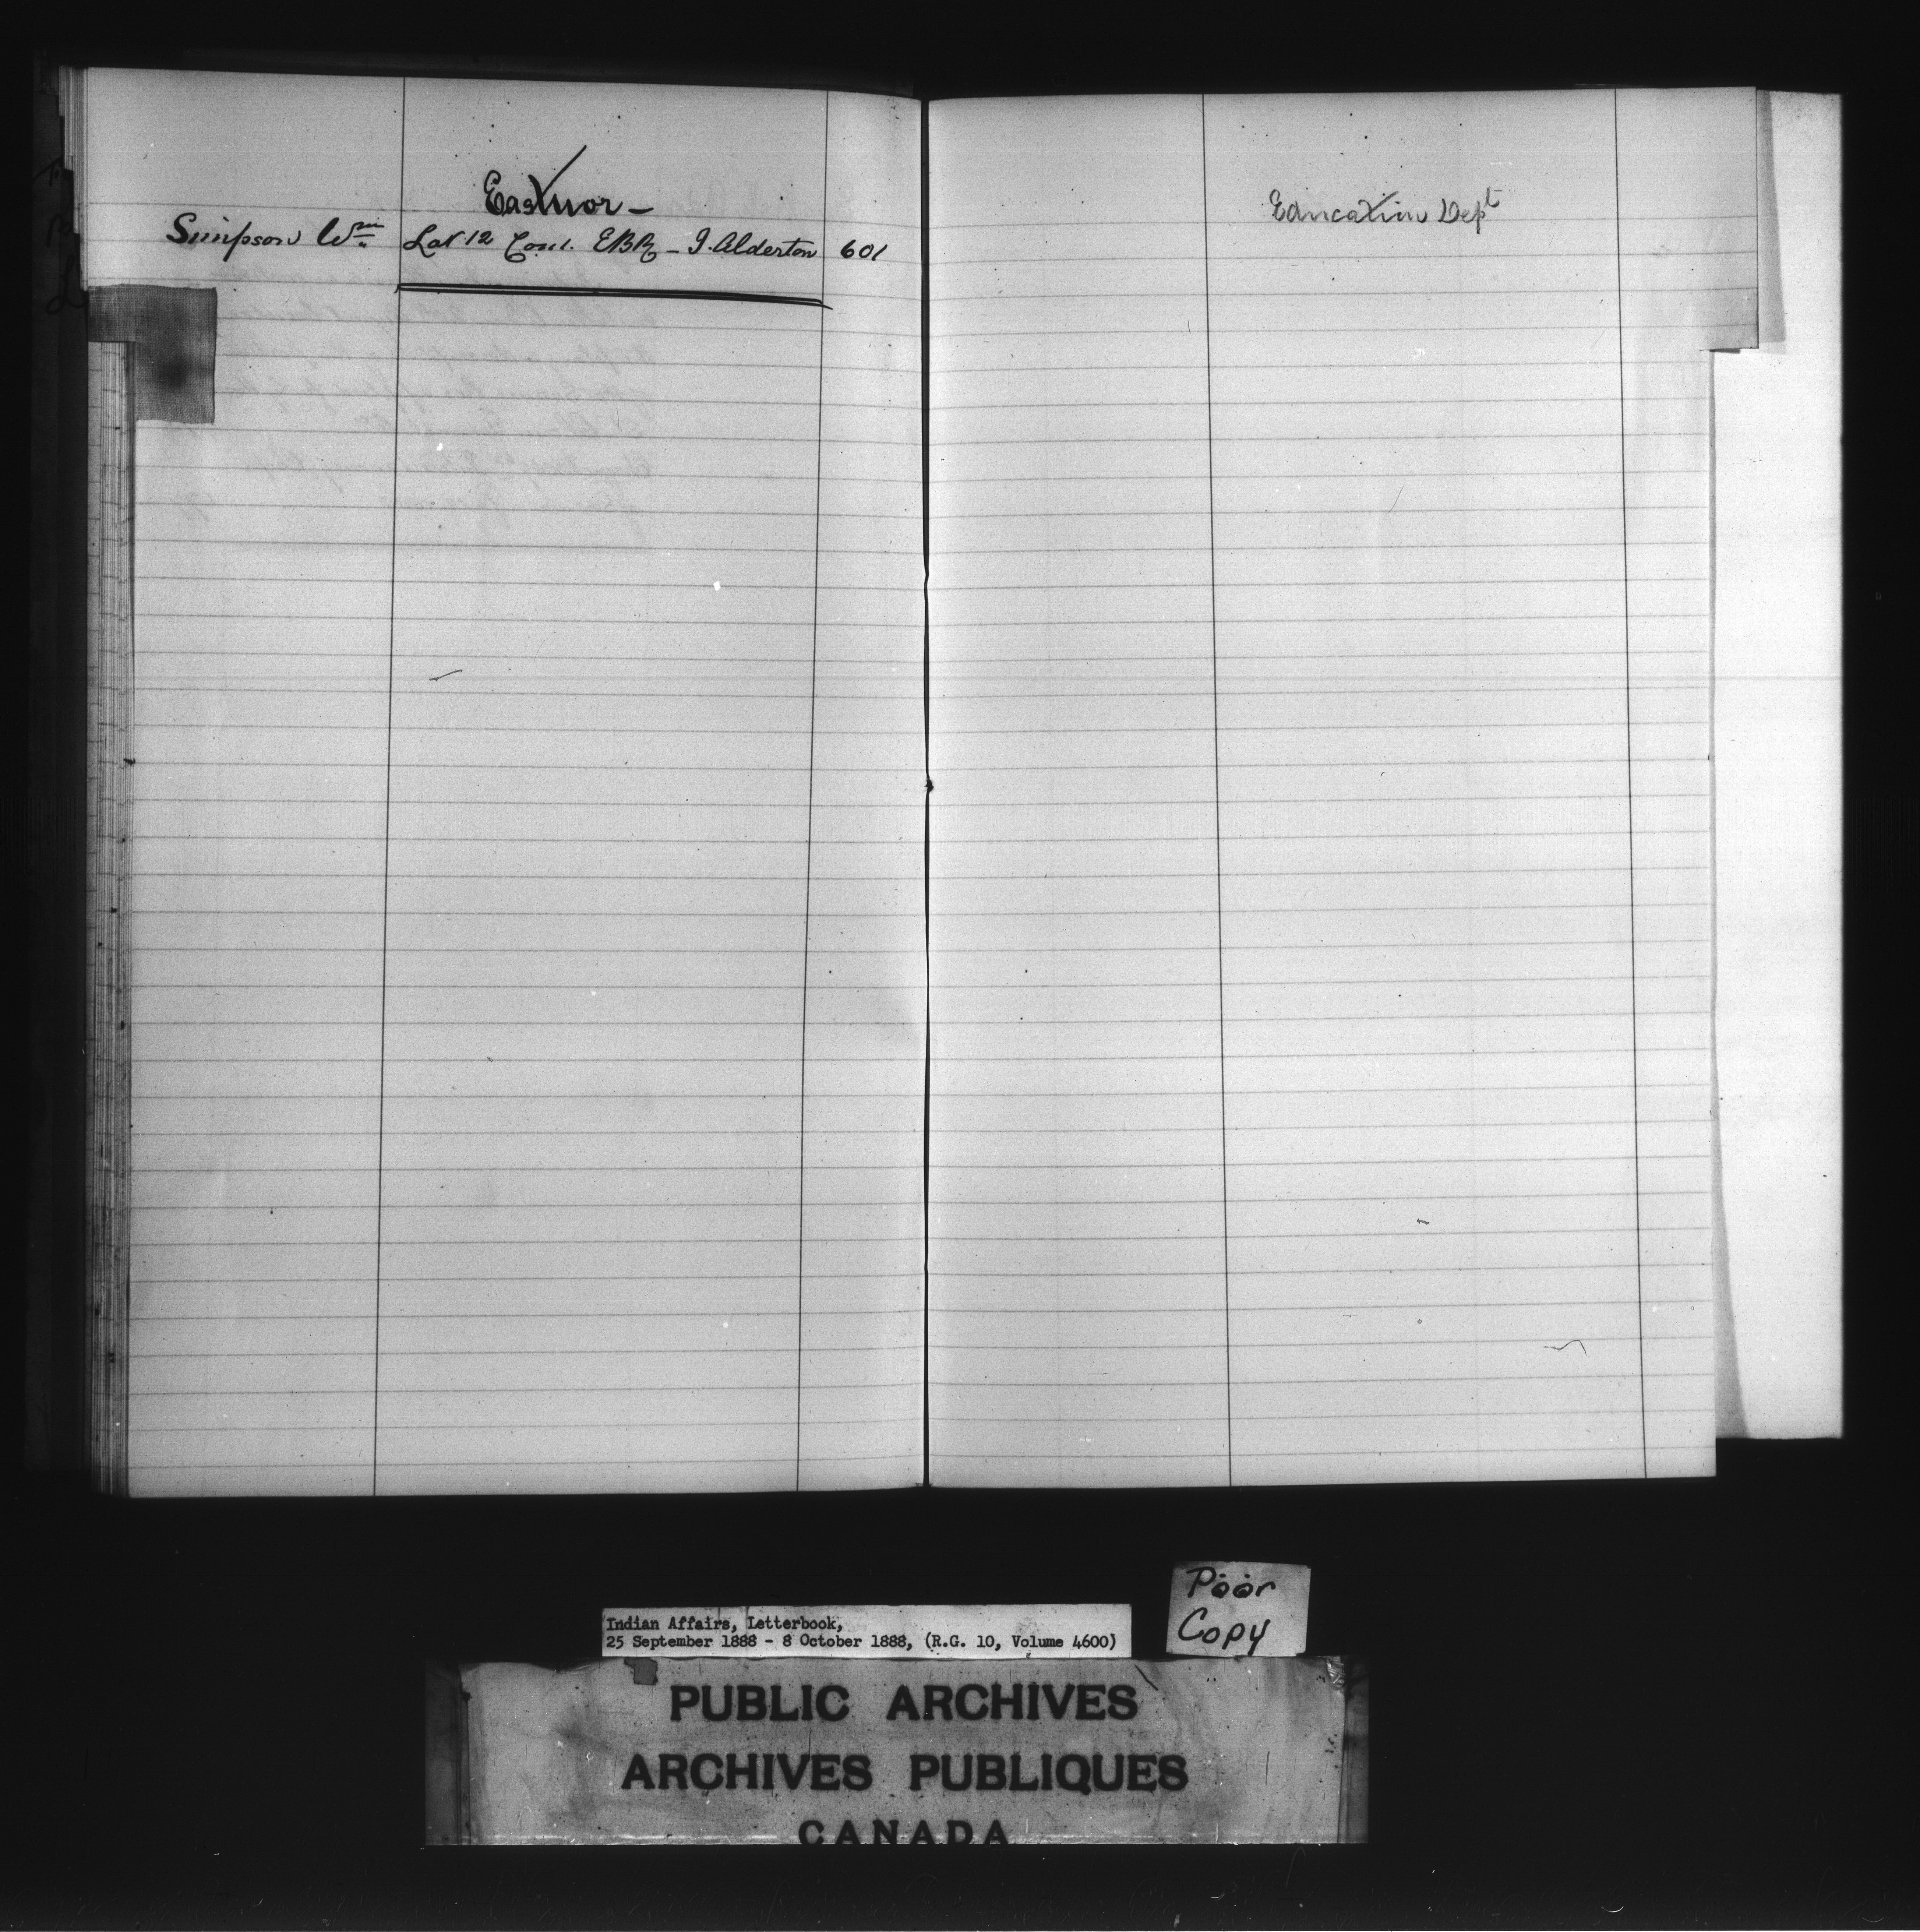 Eastnor –
Simpson Wm Lot 12 Con 1. EBR – J. Alderton 601
Education Dept
Poor
Copy
Indian Affairs, Letterbook,
25 September 1888 - 8 October 1888, (R.G. 10, Volume 4600)
PUBLIC ARCHIVES
ARCHIVES PUBLIQUES
CANADA